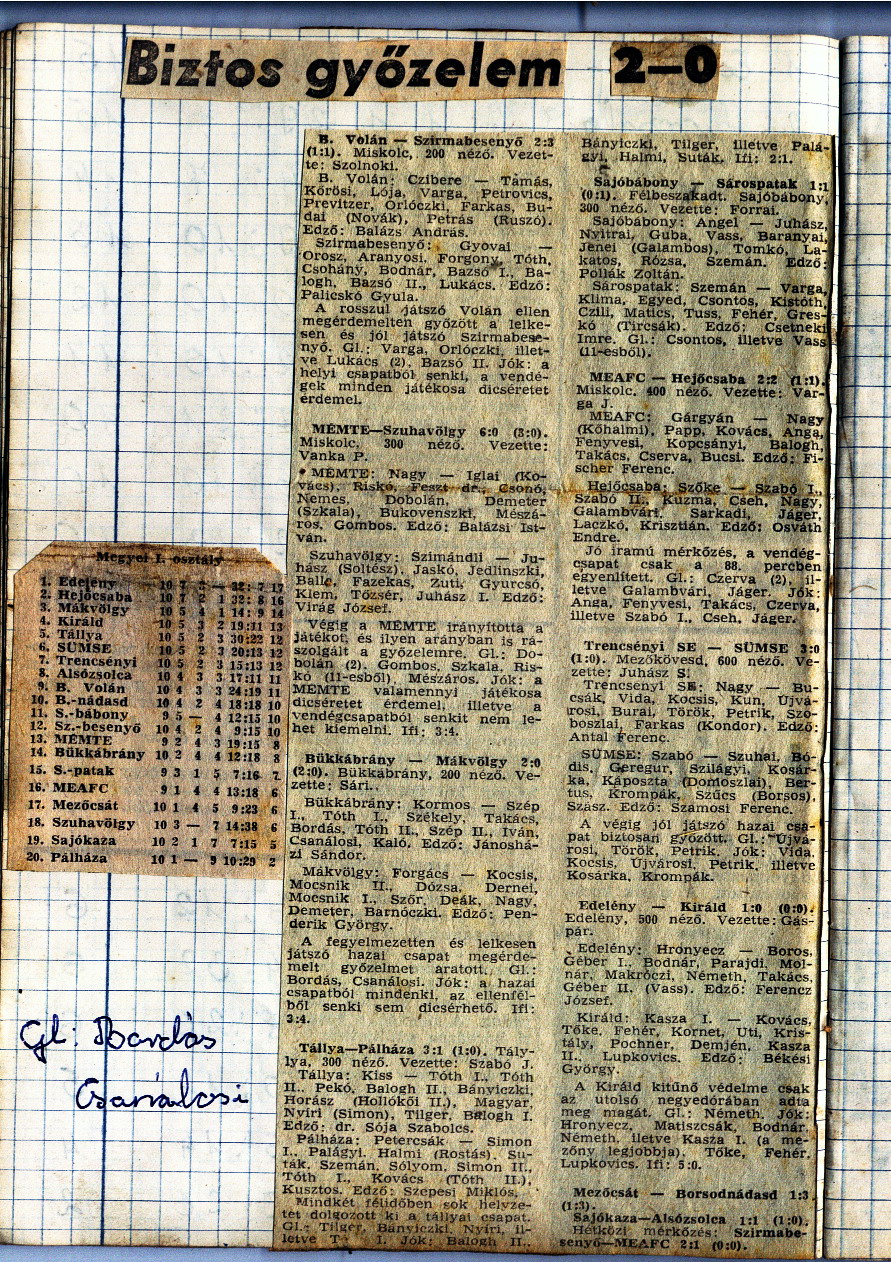 Biztos győzelem 2—0
B. Volán — Szirmabesenyő 2:3
(1:1). Miskolc, 200 néző. Vezet-
te: Szolnoki.
B. Volán: Czibere — Tamás,
Kőrösi, Lója, Varga, Petrovics,
Previtzer, Orlóczki, Farkas, Bu-
dai (Novák), Petrás (Ruszó).
Edző: Balázs András.
Szirmabesenyő: Gyovai —
Orosz, Aranyosi, Forgony, Tóth,
Csohány, Bodnár, Bazsó I., Ba-
logh, Bazsó II., Lukács. Edző:
Palicskó Gyula.
A rosszul játszó Volán ellen
megérdemelten győzött a lelke-
sen és jól játszó Szirmabese-
nyő. Gl.: Varga, Orlóczki, illet-
ve Lukács (2), Bazsó II. Jók: a
helyi csapatból senki, a vendé-
gek minden játékosa dicséretet
érdemel.
MÉMTE—Szuhavölgy 6:0 (3:0).
Miskolc, 300 néző. Vezette:
Vanka P.
MÉMTE: Nagy — Iglai (Ko-
vács), Riskó, Feszt dr., Csonó,
Nemes, Dobolán, Demeter
(Szkala), Bukovenszki, Mészá-
ros, Gombos. Edző: Balázsi Ist-
ván.
Szuhavölgy: Szimándli — Ju-
hász (Soltész), Jaskó, Jedlinszki,
Balle, Fazekas, Zuti, Gyurcsó,
Klem, Tőzsér, Juhász I. Edző:
Virág József.
Végig a MÉMTE irányította a
játékot, és ilyen arányban is rá-
szolgált a győzelemre. Gl.: Do-
bolán (2), Gombos, Szkala, Ris-
kó (11-esből), Mészáros. Jók: a
MÉMTE valamennyi játékosa
dicséretet érdemel, illetve a
vendégcsapatból senkit nem le-
het kiemelni. Ifi: 3:4.
Bükkábrány — Mákvölgy 2:0
(2:0). Bükkábrány, 200 néző. Ve-
zette: Sári.
Bükkábrány: Kormos — Szép
I., Tóth I., Székely, Takács,
Bordás, Tóth II., Szép II., Iván,
Csanálosi, Kaló. Edző: Jánoshá-
zi Sándor.
Mákvölgy: Forgács — Kocsis,
Mocsnik II., Dózsa, Dernei,
Mocsnik I., Szőr, Deák, Nagy,
Demeter, Barnóczki. Edző: Pen-
derik György.
A fegyelmezetten és lelkesen
játszó hazai csapat megérde-
melt győzelmet aratott. Gl.:
Bordás, Csanálosi. Jók: a hazai
csapatból mindenki, az ellenfél-
ből senki sem dicsérhető. Ifi:
3:4.
Tállya—Pálháza 3:1 (1:0). Tály-
lya, 300 néző. Vezette: Szabó J.
Tállya: Kiss — Tóth I., Tóth
II., Pekó, Balogh II., Bányiczki,
Horász (Hollókői II.), Magyar,
Nyíri (Simon), Tilger, Balogh I.
Edző: dr. Sója Szabolcs.
Pálháza: Petercsák — Simon
I., Palágyi, Halmi (Rostás), Su-
ták, Szemán, Sólyom, Simon II.,
Tóth I., Kovács (Tóth II.),
Kusztos. Edző: Szepesi Miklós.
Mindkét félidőben sok helyze-
tet dolgozott ki a tállyai csapat.
Gl.: Tilger, Bányiczki, Nyíri, il-
letve T I. Jók: Balogh II.,
Bányiczki, Tilger, illetve Palá-
gyi, Halmi, Suták. Ifi: 2:1.
Sajóbábony — Sárospatak 1:1
(0:1). Félbeszakadt. Sajóbábony,
300 néző. Vezette: Forrai.
Sajóbábony: Angel — Juhász,
Nyitrai, Guba, Vass, Baranyai,
Jenei (Galambos), Tomkó, La-
katos, Rózsa, Szemán. Edző:
Pollák Zoltán.
Sárospatak: Szemán — Varga,
Klima, Egyed, Csontos, Kistóth,
Czili, Matics, Tuss, Fehér, Gres-
kó (Tircsák). Edző: Csetneki
Imre. Gl.: Csontos, illetve Vass
(11-esből).
MEAFC — Hejőcsaba 2:2 (1:1).
Miskolc, 400 néző. Vezette: Var-
ga J.
MEAFC: Gárgyán — Nagy
(Kőhalmi), Papp, Kovács, Anga,
Fenyvesi, Kopcsányi, Balogh,
Takács, Cserva, Bucsi. Edző: Fi-
scher Ferenc.
Hejőcsaba: Szőke — Szabó I.,
Szabó II., Kuzma, Cseh, Nagy,
Galambvári, Sarkadi, Jáger,
Laczkó, Krisztián. Edző: Osváth
Endre.
Jó iramú mérkőzés, a vendég-
csapat csak a 88. percben
egyenlített. Gl.: Czerva (2), il-
letve Galambvári, Jáger. Jók:
Anga, Fenyvesi, Takács, Czerva,
illetve Szabó I., Cseh, Jáger.
Trencsényi SE — SÜMSE 3:0
(1:0). Mezőkövesd, 600 néző. Ve-
zette: Juhász S.
Trencsényi SE: Nagy — Bu-
csák, Vida, Kocsis, Kun, Újvá-
rosi, Burai, Török, Petrik, Szo-
boszlai, Farkas (Kondor). Edző:
Antal Ferenc.
SÜMSE: Szabó — Szuhai, Bó-
dis, Geregur, Szilágyi, Kosár-
ka, Káposzta (Domoszlai), Ber-
tus, Krompák, Szűcs (Borsos),
Szász. Edző: Szamosi Ferenc.
A végig jól játszó hazai csa-
pat biztosan győzött. Gl.: Újvá-
rosi, Török, Petrik. Jók: Vida,
Kocsis, Újvárosi, Petrik, illetve
Kosárka, Krompák.
Edelény — Királd 1:0 (0:0).
Edelény, 500 néző. Vezette: Gás-
pár.
Edelény: Hronyecz — Boros,
Géber I., Bodnár, Parajdi, Mol-
nár, Makróczi, Németh, Takács,
Géber II. (Vass). Edző: Ferencz
József.
Királd: Kasza I. — Kovács,
Tőke, Fehér, Kornet, Uti, Kris-
tály, Pochner, Demjén, Kasza
II., Lupkovics. Edző: Békési
György.
A Királd kitűnő védelme csak
az utolsó negyedórában adta
meg magát. Gl.: Németh. Jók:
Hronyecz, Matiszcsák, Bodnár,
Németh, illetve Kasza I. (a me-
zőny legjobbja), Tőke, Fehér,
Lupkovics. Ifi: 5:0.
Mezőcsát — Borsodnádasd 1:3
(1:3).
Sajókaza—Alsózsolca 1:1 (1:0).
Hétközi mérkőzés: Szirmabe-
senyő—MEAFC 2:1 (0:0).
Megyei I. osztály
1. Edelény 10 7 3 — 32: 7 17
2. Hejőcsaba 10 7 2 1 32: 8 16
3. Mákvölgy 10 5 4 1 14: 9 14
4. Királd 10 5 3 2 19:11 13
5. Tállya 10 5 2 3 30:22 12
6. SÜMSE 10 5 2 3 20:13 12
7. Trencsényi 10 5 2 3 15:13 12
8. Alsózsolca 10 4 3 3 17:11 11
9. B. Volán 10 4 3 3 24:19 11
10. B.-nádasd 10 4 2 4 18:18 10
11. S.-bábony 9 5 — 4 12:15 10
12. Sz.-besenyő 10 4 2 4 9:15 10
13. MÉMTE 9 2 4 3 19:15 8
14. Bükkábrány 10 2 4 4 12:18 8
15. S.-patak 9 3 1 5 7:16 7
16. MEAFC 9 1 4 4 13:18 6
17. Mezőcsát 10 1 4 5 9:23 6
18. Szuhavölgy 10 3 — 7 14:38 6
19. Sajókaza 10 2 1 7 7:15 5
20. Pálháza 10 1 — 9 10:29 2
Gl: Bordás
Csanálosi